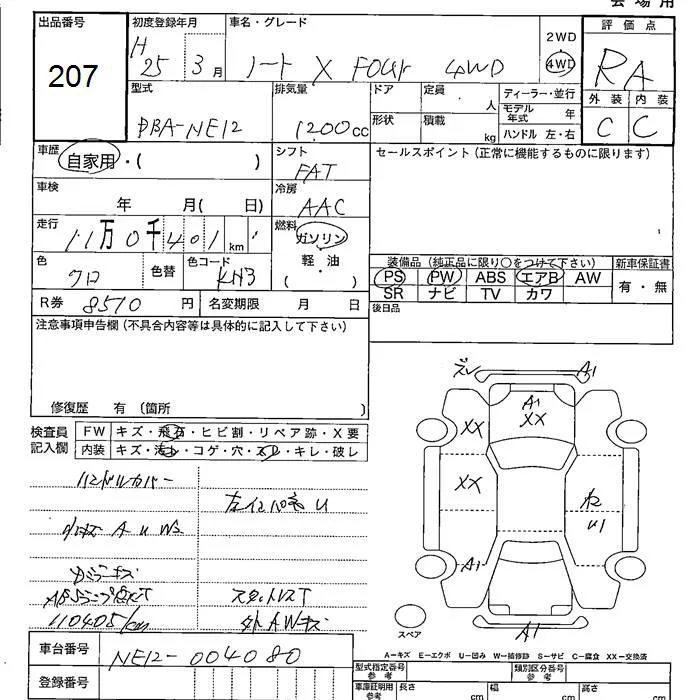 会場用
出品番号 初度登録年月 車名・グレード 評価点
207
H 25 3月 ノート X FOUR 4WD
2WD
4WD
RA
型式 排気量 ドア 定員 人 ディーラー・並行
モデル年式 年
形状 積載 kg ハンドル 左・右
外装 内装
C C
DBA-NE12 1200cc
車歴 自家用・( ) シフト FAT
セールスポイント(正常に機能するものに限ります)
車検 年 月( 日) 冷房 AAC
走行 11万0千401km 燃料 ガソリン
軽・油
( )
色 クロ 色替 色コード KH3
装備品(純正品に限り○をつけて下さい) 新車保証書
PS PW ABS エアB AW 有・無
SR ナビ TV カワ
R券 8510円 名変期限 月 日
後日品
注意事項申告欄(不具合内容等は具体的に記入して下さい)
修復歴 有 〔箇所 〕
検査員記入欄 FW キズ・飛石・ヒビ割・リペア跡・X要
内装 キズ・汚れ・コゲ・穴・スレ・キレ・破レ
ハンドルカバー
左インパネ U
小キズ A U W3
ガラキズ
ABSランプ点灯 スタットレスT
110405km 外AWキズ
ズレ A1
A1
XX
XX
XX
ワレ
U1
A1
A1
スペア
A−キズ E−エクボ U−凹み W−補修跡 S−サビ C−腐食 XX−交換済
車台番号 NE12-004080
登録番号
型式指定番号 参考 類別区分番号 参考
車庫証明用 参考 長さ cm 幅 cm 高さ cm